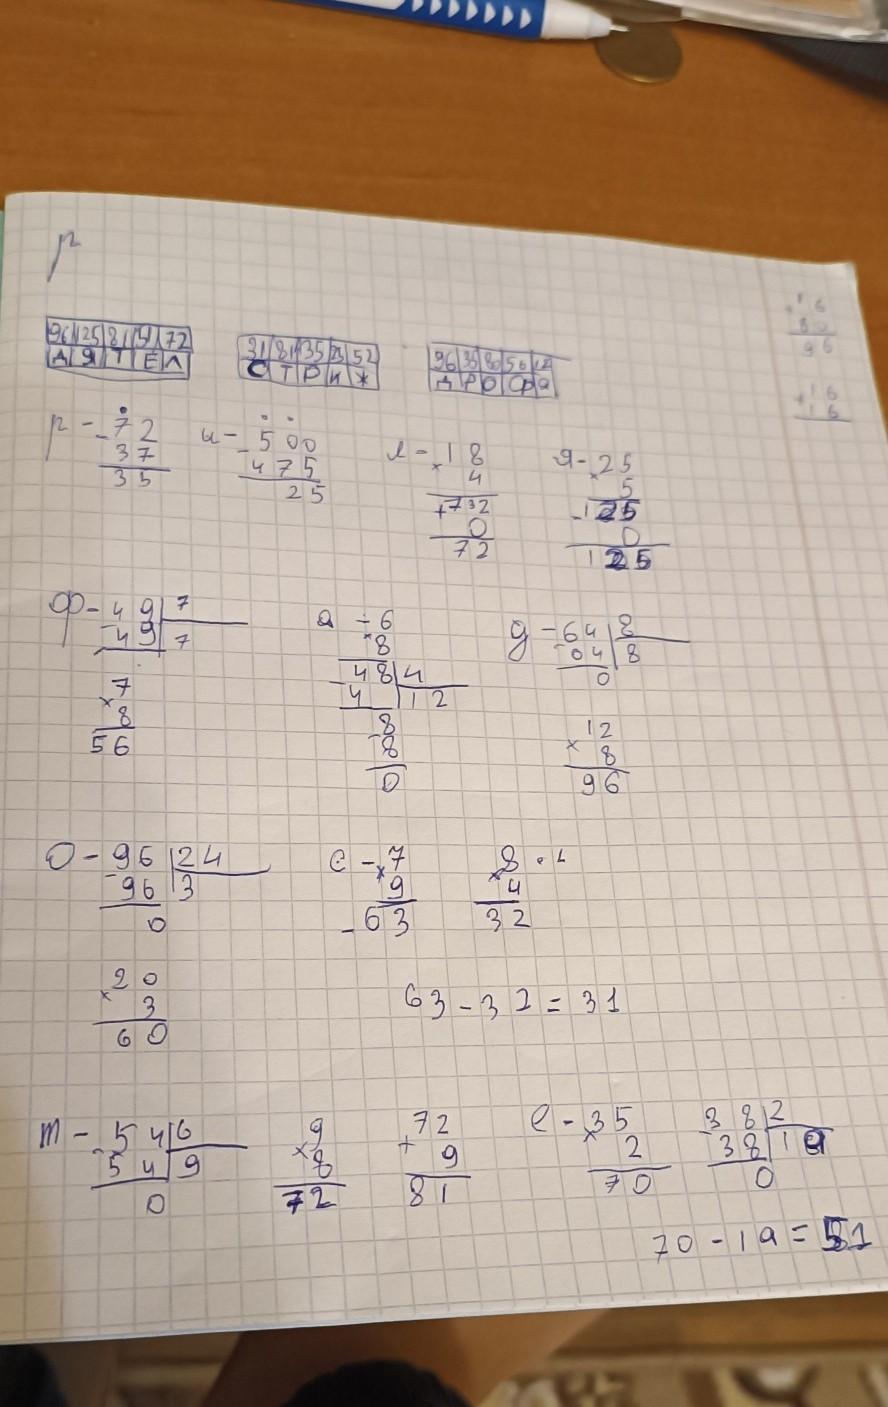 р
16
80
96
16
16
96 125 81 51 72
Д Я Т Е Л
31 81 35 25 52
С Т Р И Ж
96 35 60 56 12
Д Р О Ф А
р - 72
37
35
и - 500
475
25
л - 18
× 4
+ 732
0
72
я - 25
× 5
125
0
125
ф - 49 7
- 49 7
7
× 8
56
а - 6
× 8
48 4
- 4 12
8
- 8
0
д - 64 8
- 64 8
0
12
× 8
96
О - 96 24
- 96 3
0
20
× 3
60
с - 7
× 9
63
8
× 4
32
63 - 32 = 31
т - 54 6
- 54 9
0
9
× 8
72
72
+ 9
81
е - 35
× 2
70
38 2
- 38 19
0
70 - 19 = 51